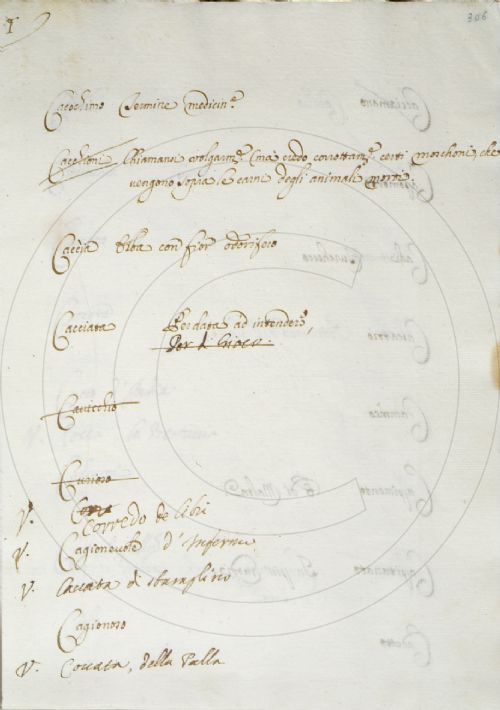 306
Cacochimo Termine medicin.e
Cacchioni Chiamansi volgarm.e (ma credo corrottam.e certi marchoni, che
vengono sopra le carni degli animali morti.
Caccia Erba con fior odorifero
Cacciata Per data ad intendere,
Per
Cavicchio
V. Corredo de libri
V. Cagionevole d'Inferno
V. Caccata di sbaraglino
Cagionoso
V. Coccata, della Palla